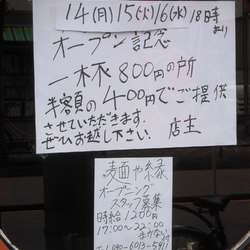 14(月)15(火)16(水)18時より
オープン記念
一杯800円の所
半額の400円でご提供
させていただきます。
ぜひお越し下さい。 店主
麺面や縁
オープニング
スタッフ募集
時給1200円
17:00~22:00
まかない